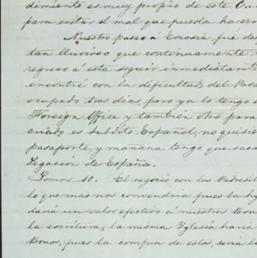 dimiento es muy propio de este
para evitar el mal que pueda hacer
Nuestro paseo á Escosia fue de
tan lluvioso que continuamente
regreso a esta seguir inmediatamente
encontré con la dificultad del Pasa
ocupado tres dias, pero ya lo tengo
Foreign Office y tambien otro para
criado es Subdito Español, no quisie
pasaporte, y mañana tengo que saca
Legacion de España.
Somos 10. El negocio con los Padres
lo que mas nos convendria pues la hy
daria un valor efectivo á nuestros Bon
la escritura, la misma Iglesia haria
Bonos, pues la compra de estos seria